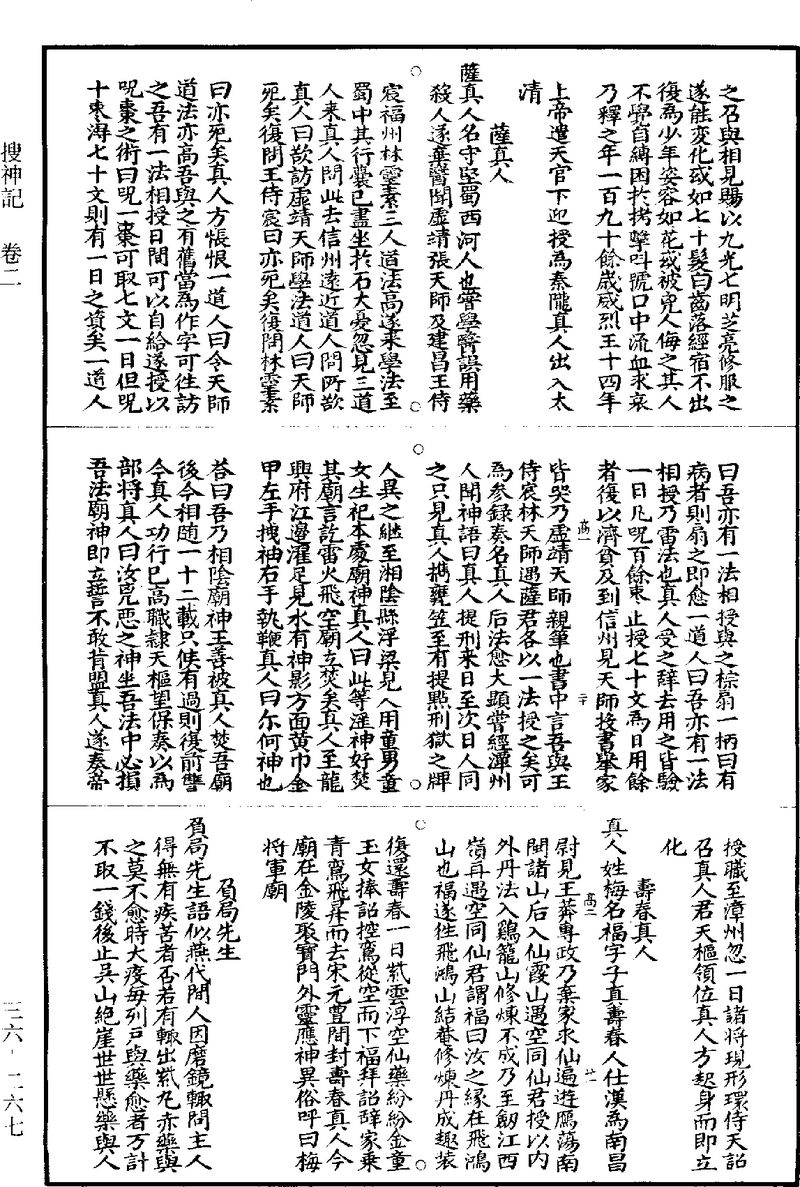 之召與相見賜以九光七明芝亮修服之
遂能変化或如七十髮白齒落經宿不出
復為少年姿容如花或被兇人侮之其人
不覺自縛困於拷擊呌號口中流血求哀
乃釋之年一百九十餘歲威烈王十四年
上帝遣天官下迎授為秦隴真人出入太
清
薩真人
薩真人名守堅蜀西河人也嘗學醫誤用藥
殺人遂棄醫聞虛靖張天師及建昌王侍
宸福州林靈素三人道法高遂來學法至
蜀中其行囊已盡坐於石大憂忽見三道
人来真人問此去信州遠近道人問所欲
真人曰欲訪虛靖天師學法道人曰天師
死矣復問王侍宸曰亦死矣復問林靈素
曰亦死矣真人方悵恨一道人曰今天師
道法亦高吾與之有舊當為作字可往訪
之吾有一法相授日間可以自給遂授以
呪棗之術曰呪一棗可取七文一日但呪
十枣淂七十文則有一日之資矣一道人
曰吾亦有一法相授與之棕扇一柄曰有
病者則扇之即愈一道人曰吾亦有一法
相授乃雷法也真人受之辞去用之皆驗
一日凡呪百餘枣止授七十文為日用餘
者復以濟貧及到信州見天師投書舉家
皆哭乃虛靖天師親筆也書中言吾與王
侍宸林天師遇薩君各以一法授之矣可
為參錄奏名真人后法愈大顯嘗經潭州
人聞神語曰真人提刑来日至次日人同
之只見真人携甕笠至有提點刑獄之牌
人異之継至湘陰縣浮梁見人用童男童
女生祀本處廟神真人曰此等淫神好焚
其廟言訖雷火飛空廟立焚矣真人至龍
興府江邊濯足見水有神影方面黄巾金
甲左手拽袖右手執鞭真人曰尓何神也
荅曰吾乃相陰廟神王善被真人焚吾廟
後今相随一十二載只候有過則復前讐
今真人功行已高職隸天樞望保奏以為
部将真人曰汝兇惡之神坐吾法中必損
吾法廟神即立誓不敢背盟真人遂奏帝
授職至漳州忽一日諸将現形環侍天詔
召真人君天樞領位真人方起身而即立
化
壽春真人
真人姓梅名福字子真壽春人仕漢為南昌
尉見王莽專政乃棄家求仙遍遊鴈蕩南
閩諸山后入仙霞山遇空同仙君授以内
外丹法入鷄籠山修煉不成乃至劔江西
嶺再遇空同仙君謂福曰汝之縁在飛鴻
山也福遂徃飛鴻山結菴修煉丹成趣裝
復還壽春一日紫雲浮空仙藥紛紛金童
玉女捧詔控鸞從空而下福拜詔辞家乗
青鸞飛昇而去宋元豊間封壽春真人今
廟在金陵聚寶門外靈應神異俗呼曰梅
将軍廟
負局先生
負局先生語似燕代間人因磨鏡輙問主人
得無有疾苦者否若有輙出紫丸赤藥與
之莫不愈時大疫每列戸與藥愈者万計
不取一錢後止吳山絶崖世世懸藥與人
搜神記　卷二
三六-二六七